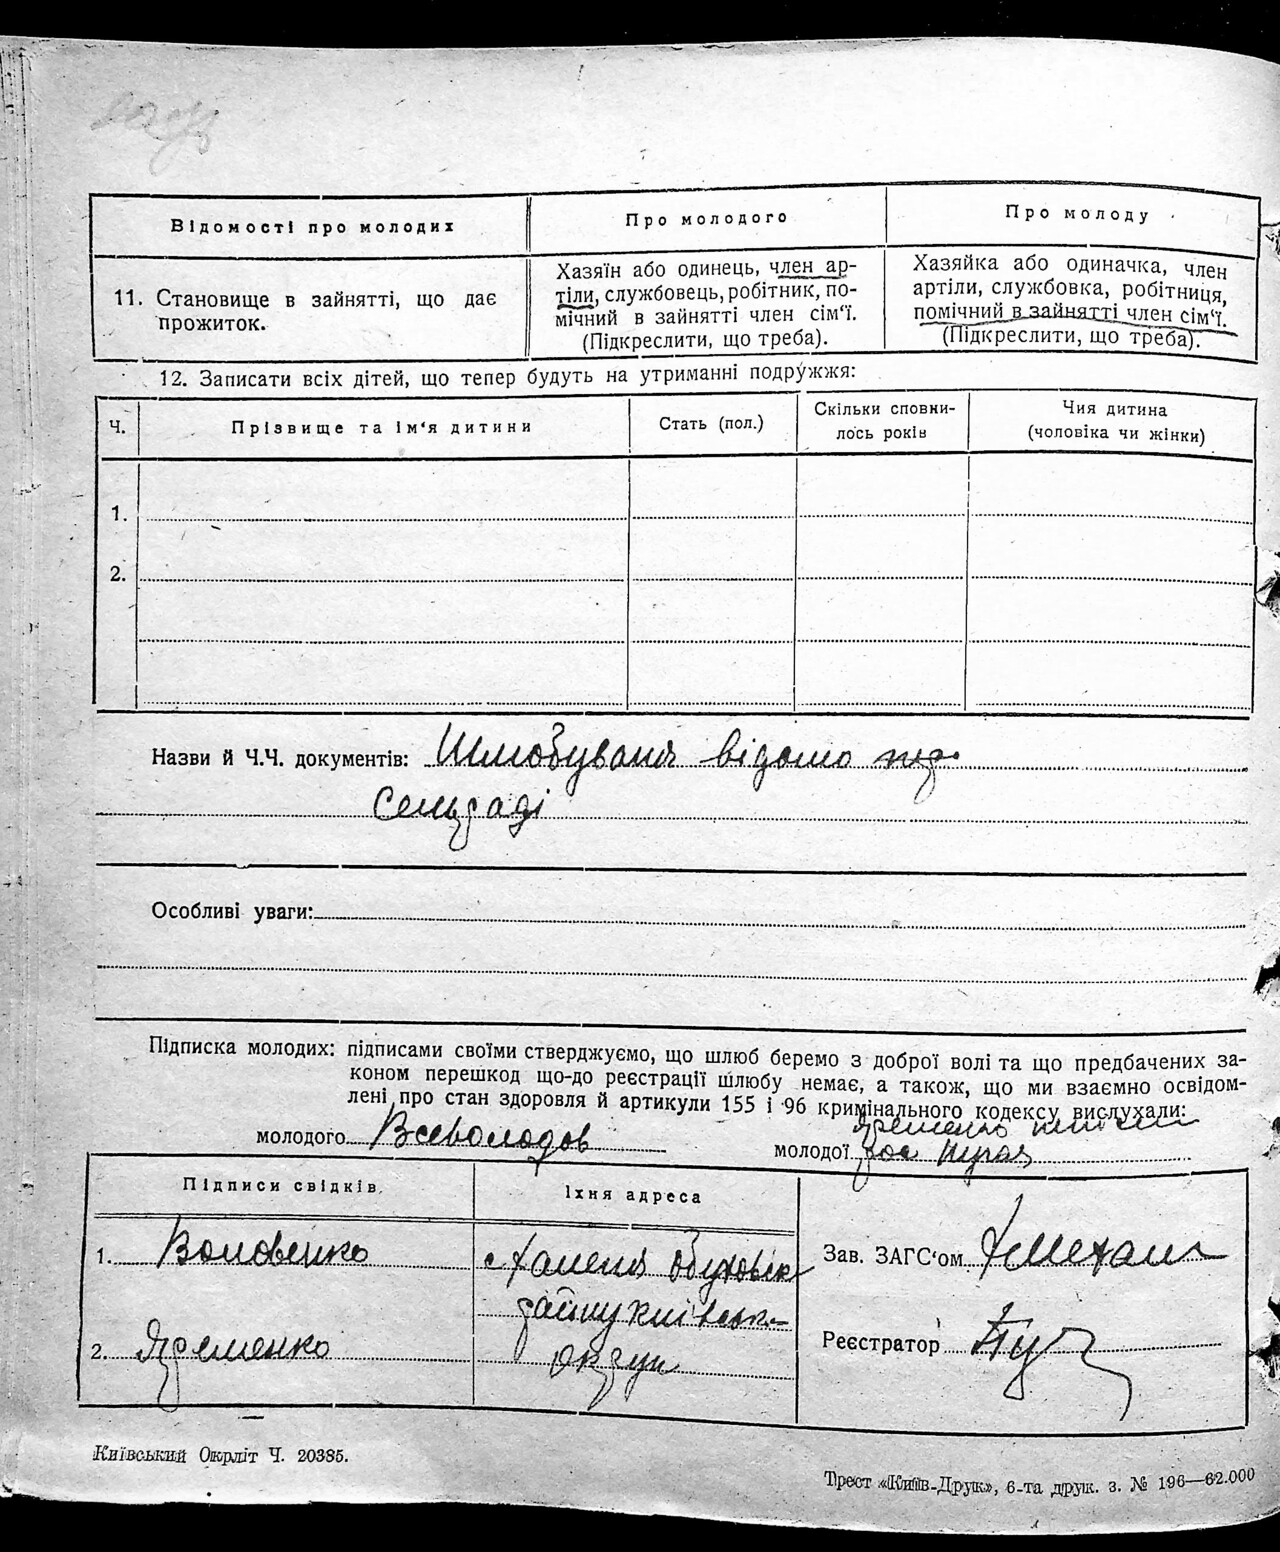 Відомості про молодих
Про молодого
Про молоду
11. Становище в зайнятті, що дає
прожиток.
Хазяїн або одинець, член ар-
тіли, службовець, робітник, по-
мічний в зайнятті член сім'ї.
(Підкреслити, що треба).
Хазяйка або одиначка, член
артіли, службовка, робітниця,
помічний в зайнятті член сім'ї.
(Підкреслити, що треба).
12. Записати всіх дітей, що тепер будуть на утриманні подружжя:
Ч.
Прізвище та ім'я дитини
Стать (пол.)
Скільки сповни-
лось років
Чия дитина
(чоловіка чи жінки)
1.
2.
Назви й Ч.Ч. документів: Шлюбування відомо при
Сельраді
Особливі уваги:
Підписка молодих: підписами своїми стверджуємо, що шлюб беремо з доброї волі та що предбачених за-
коном перешкод що-до реєстрації шлюбу немає, а також, що ми взаємно освідом-
лені про стан здоровля й артикули 155 і 96 кримінального кодексу вислухали:
молодого Всеволодов
молодої
Підписи свідків
Їхня адреса
1. Воловенко
2. Яременко
район Київськ
округи
Зав. ЗАГС'ом
Реєстратор
Київський Окрліт Ч. 20385.
Трест «Київ-Друк», 6-та друк. з. № 196—62.000